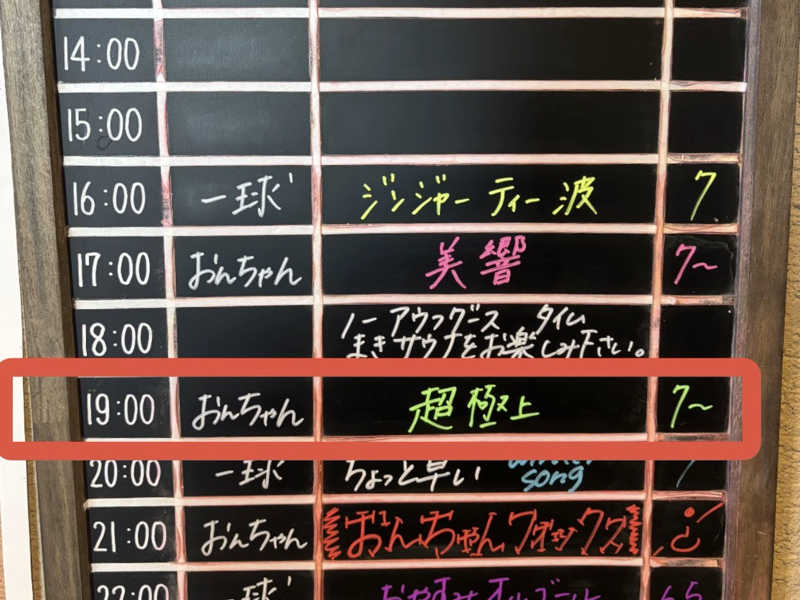 14:00
15:00
16:00 一球 ジンジャーティー波 7
17:00 おんちゃん 美響 7〜
18:00 ノーアウフグースタイム
まきサウナをお楽しみ下さい。
19:00 おんちゃん 超極上 7〜
20:00 一球 ちょっと早い song 7
21:00 おんちゃん おんちゃんフォックス
22:00 一球 おやすみオルゴール 6.5